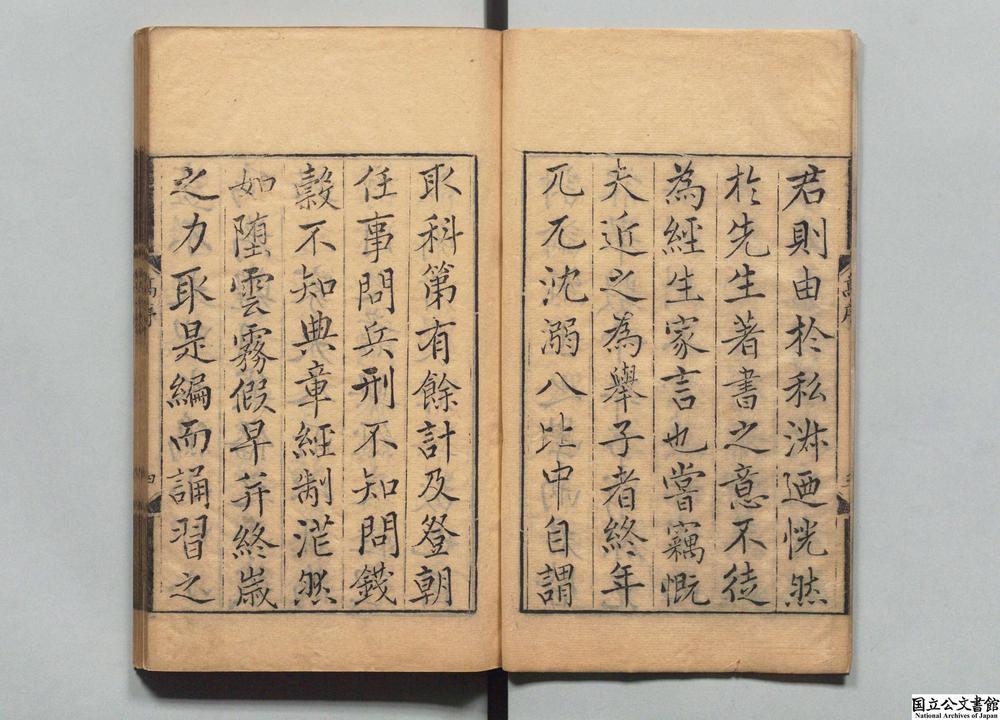 君則由於私淑迺恍然
於先生著書之意不徒
為經生家言也嘗竊慨
夫近之為舉子者終年
兀兀沈溺八比中自謂
高序
取科第有餘計及登朝
任事問兵刑不知問錢
穀不知典章經制茫然
如墮雲霧假早并終歲
之力取是編而誦習之
高序
四
国立公文書館
National Archives of Japan